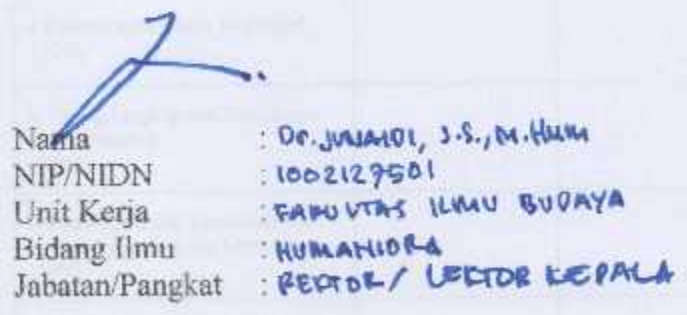 Nama : Dr. JUNAIDI, S.S., M.Hum
NIP/NIDN : 1002127501
Unit Kerja : FAKULTAS ILMU BUDAYA
Bidang Ilmu : HUMANIORA
Jabatan/Pangkat : REKTOR / LEKTOR KEPALA